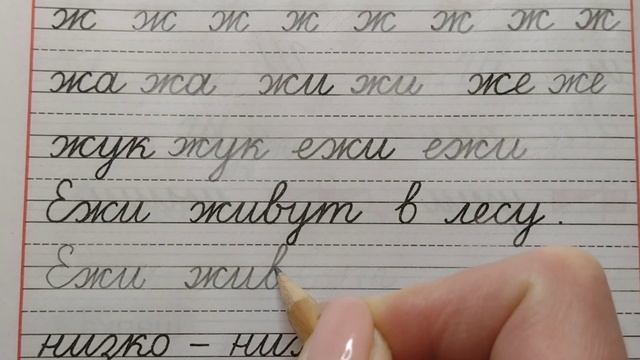 ж ж ж ж ж ж ж ж
жа жа жи жи же же
жук жук ежи ежи
Ежи живут в лесу.
Ежи жив
низко –